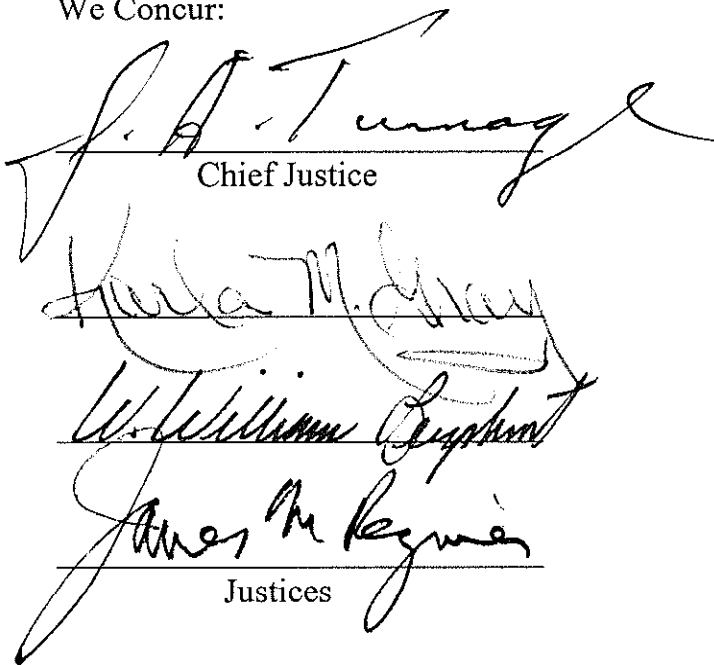 We Concur:
J. A. Turnage
Chief Justice
Karla M. Gray
W. William Leaphart
James M Regnier
Justices